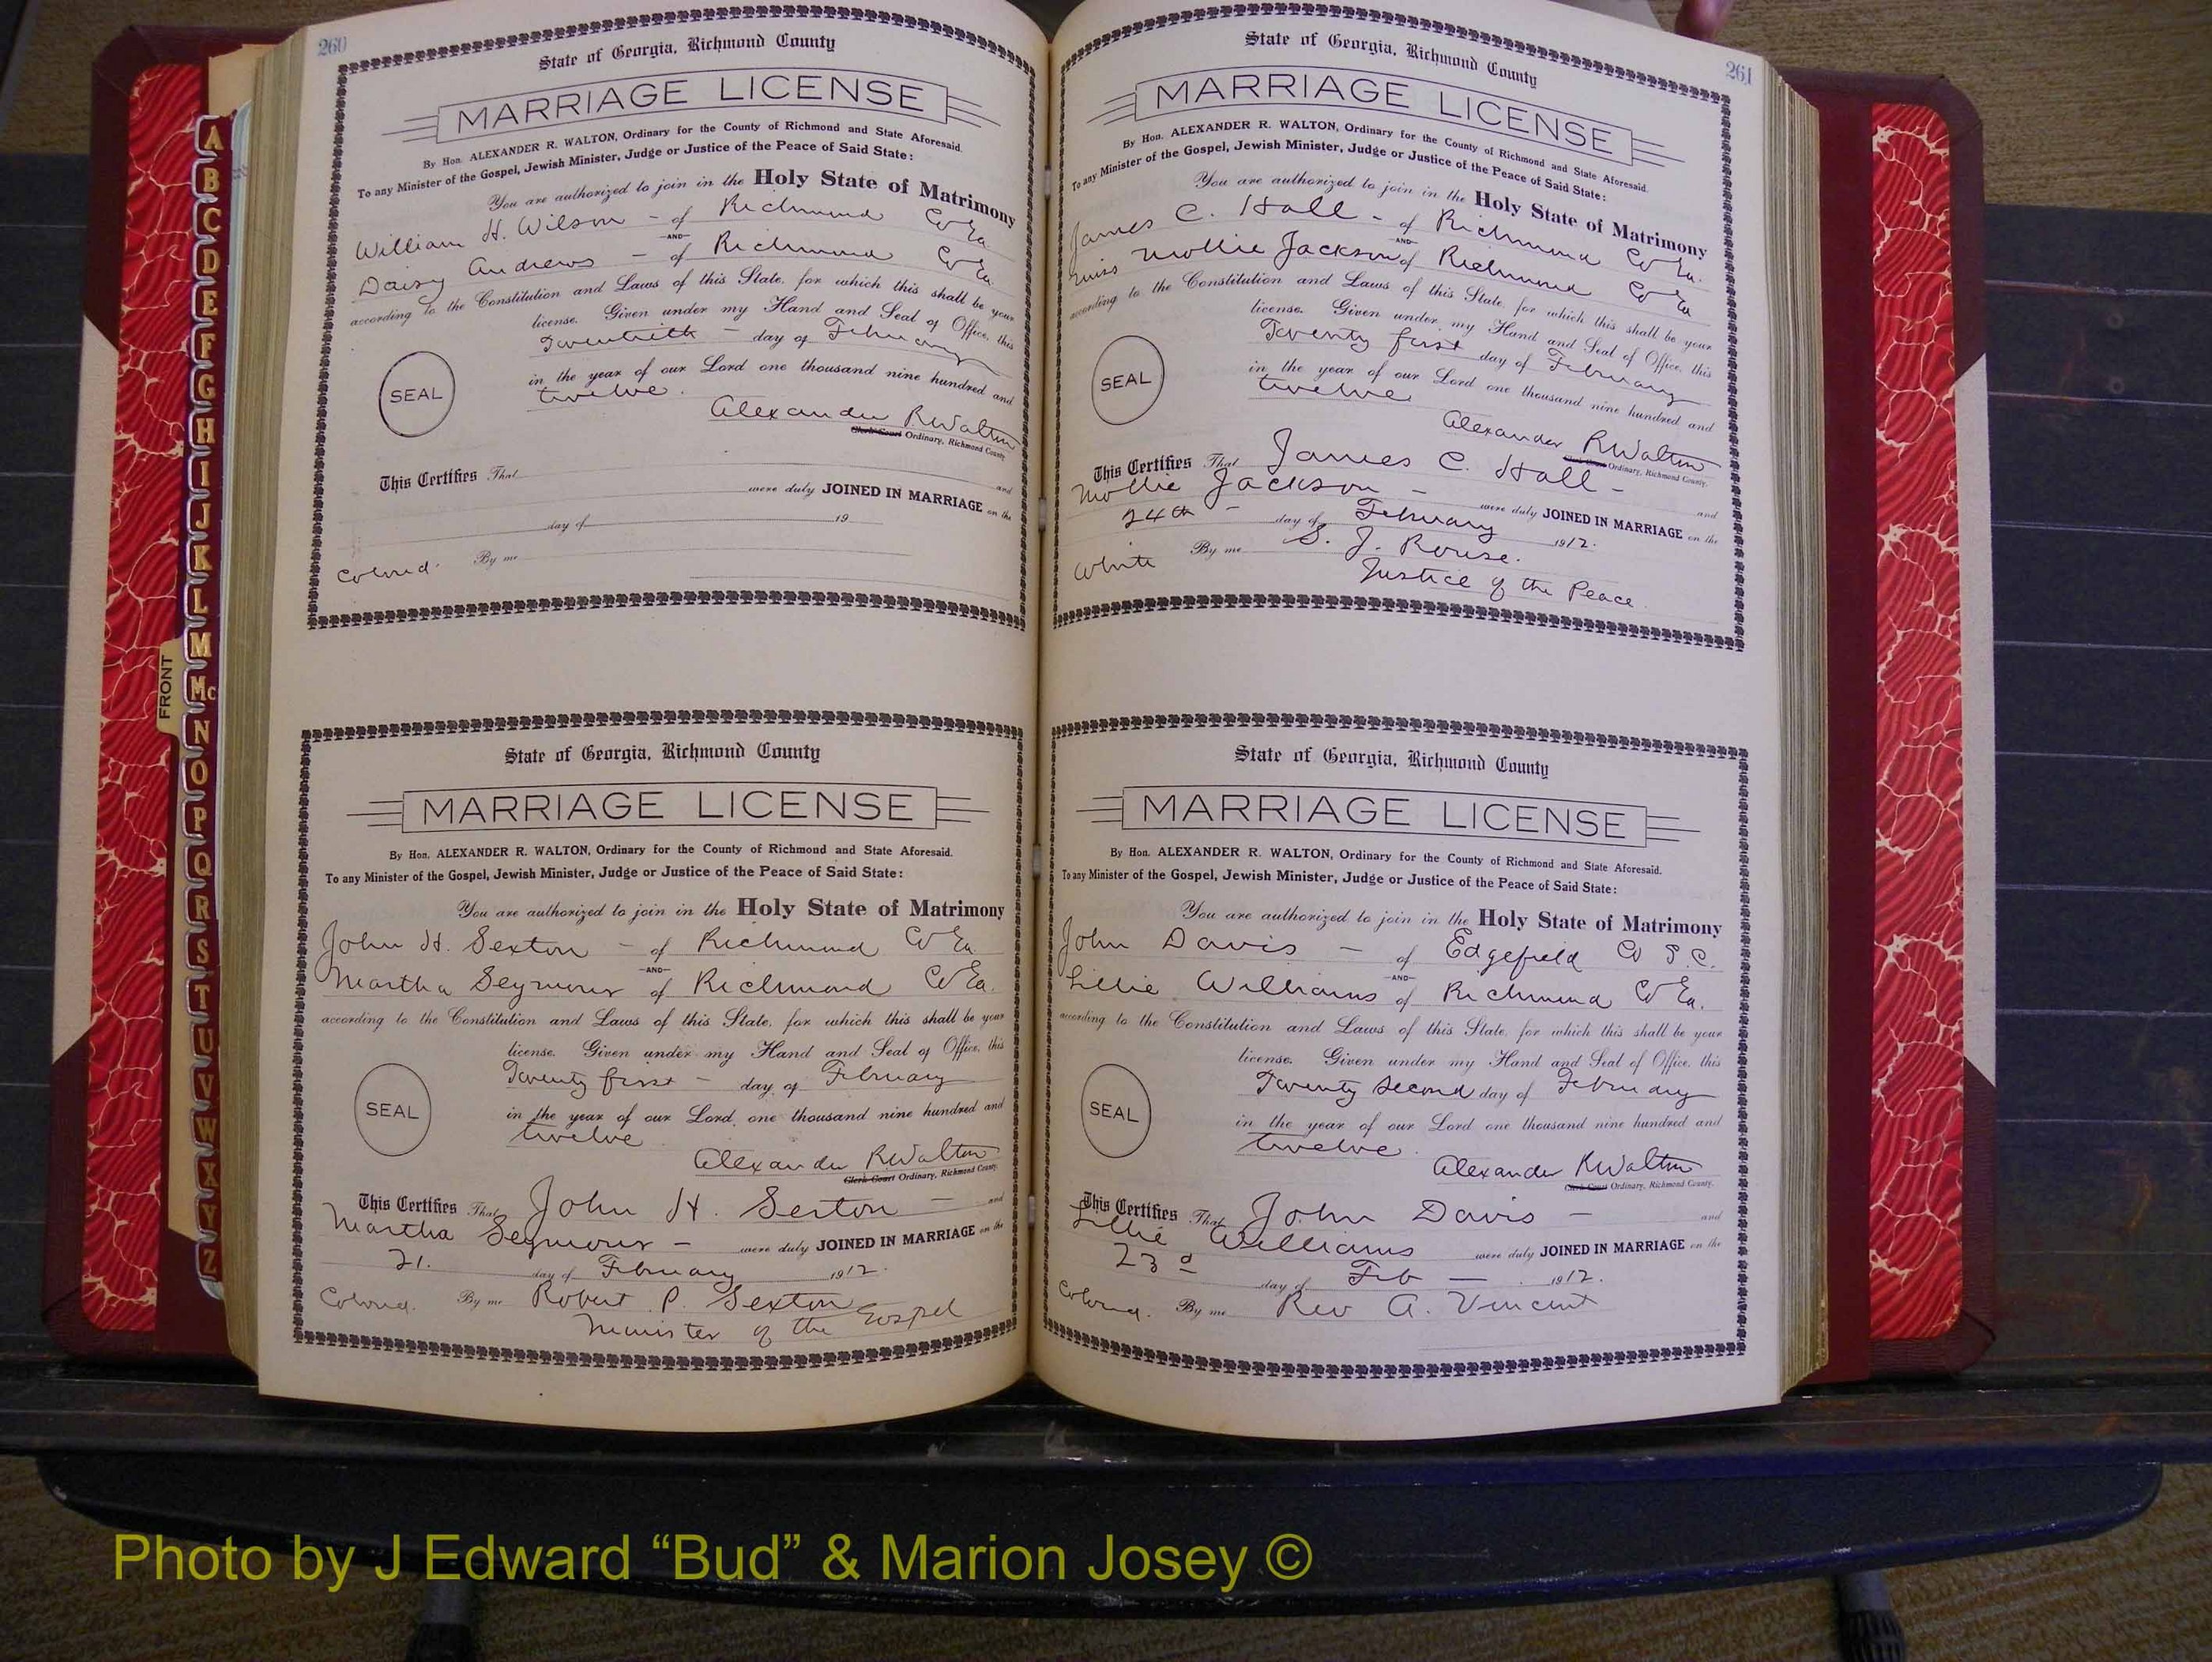 260
State of Georgia, Richmond County
MARRIAGE LICENSE
By Hon. ALEXANDER R. WALTON, Ordinary for the County of Richmond and State Aforesaid.
To any Minister of the Gospel, Jewish Minister, Judge or Justice of the Peace of Said State:
You are authorized to join in the Holy State of Matrimony
William H. Wilson - of Richmond Co Ga.
AND
Daisy Andrews - of Richmond Co Ga.
according to the Constitution and Laws of this State, for which this shall be your
license. Given under my Hand and Seal of Office, this
Twentieth - day of February
in the year of our Lord one thousand nine hundred and
twelve.
SEAL
Alexander R Walton
Clerk Court Ordinary, Richmond County
This Certifies That and
were duly JOINED IN MARRIAGE on the
day of 19
Colored. By me
State of Georgia, Richmond County
MARRIAGE LICENSE
By Hon. ALEXANDER R. WALTON, Ordinary for the County of Richmond and State Aforesaid.
To any Minister of the Gospel, Jewish Minister, Judge or Justice of the Peace of Said State:
You are authorized to join in the Holy State of Matrimony
John H. Sexton - of Richmond Co Ga.
AND
Martha Seymour of Richmond Co Ga.
according to the Constitution and Laws of this State, for which this shall be your
license. Given under my Hand and Seal of Office, this
Twenty first - day of February
in the year of our Lord, one thousand nine hundred and
twelve
SEAL
Alexander R Walton
Clerk Court Ordinary, Richmond County.
This Certifies That John H. Sexton - and
Martha Seymour - were duly JOINED IN MARRIAGE on the
21. day of February 1912.
Colored. By me Robert P. Sexton
Minister of the Gospel
261
State of Georgia, Richmond County
MARRIAGE LICENSE
By Hon. ALEXANDER R. WALTON, Ordinary for the County of Richmond and State Aforesaid.
To any Minister of the Gospel, Jewish Minister, Judge or Justice of the Peace of Said State:
You are authorized to join in the Holy State of Matrimony
James C. Hall - of Richmond Co Ga.
AND
Miss Mollie Jackson of Richmond Co Ga
according to the Constitution and Laws of this State, for which this shall be your
license. Given under my Hand and Seal of Office, this
Twenty first day of February
in the year of our Lord one thousand nine hundred and
twelve
SEAL
Alexander R Walton
Clerk Court Ordinary, Richmond County.
This Certifies That James C. Hall - and
Mollie Jackson - were duly JOINED IN MARRIAGE on the
24th - day of February 1912.
White By me S. J. Rouse.
Justice of the Peace
State of Georgia, Richmond County
MARRIAGE LICENSE
By Hon. ALEXANDER R. WALTON, Ordinary for the County of Richmond and State Aforesaid.
To any Minister of the Gospel, Jewish Minister, Judge or Justice of the Peace of Said State:
You are authorized to join in the Holy State of Matrimony
John Davis - of Edgefield Co S.C.
AND
Lillie Williams of Richmond Co Ga.
according to the Constitution and Laws of this State, for which this shall be your
license. Given under my Hand and Seal of Office, this
Twenty Second day of February
in the year of our Lord one thousand nine hundred and
twelve.
SEAL
Alexander R Walton
Clerk Court Ordinary, Richmond County.
This Certifies That John Davis - and
Lillie Williams were duly JOINED IN MARRIAGE on the
23d day of Feb - 1912.
Colored. By me Rev A. Vincent
A
B
C
D
E
F
G
H
I
J
K
L
M
Mc
N
O
P
Q
R
S
T
U
V
W
X
Y
Z
FRONT
Photo by J Edward “Bud” & Marion Josey ©